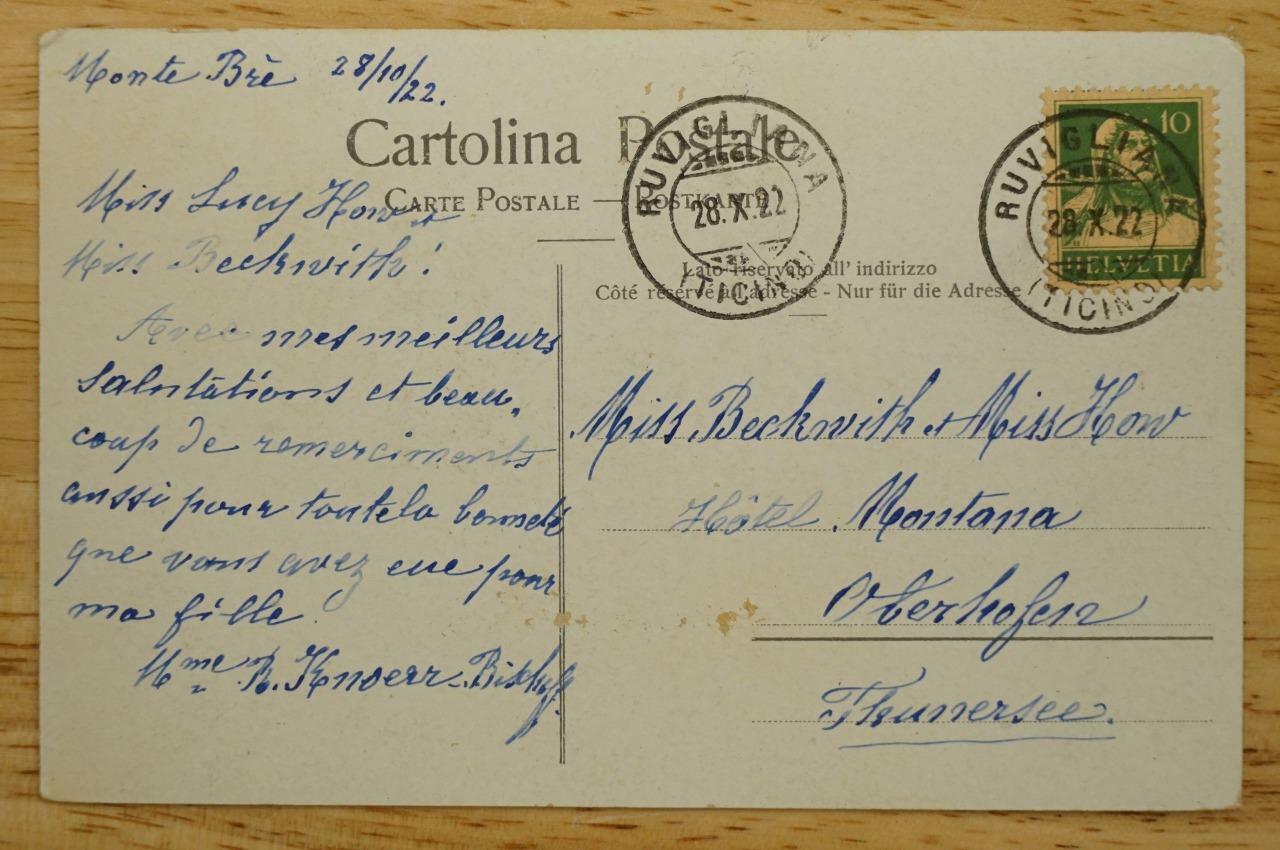 Monte Brè 28/10/22.
Cartolina Postale
CARTE POSTALE — POSTKARTE
Miss Lucy How et
Miss Beckwith!
Avec mes meilleurs
salutations et beau„
coup de remerciments
aussi pour toute la bonneté
que vous avez eue pour
ma fille.
Mme R. Knoerr-Bischoff.
RUVIGLIANA
28.X.22
(TICINO)
10
HELVETIA
RUVIGLIANA
28.X.22
(TICINO)
Lato riservato all' indirizzo
Côté réservé à l'adresse - Nur für die Adresse
Miss Beckwith et Miss How
Hôtel Montana
Oberhofen
Thunersee.